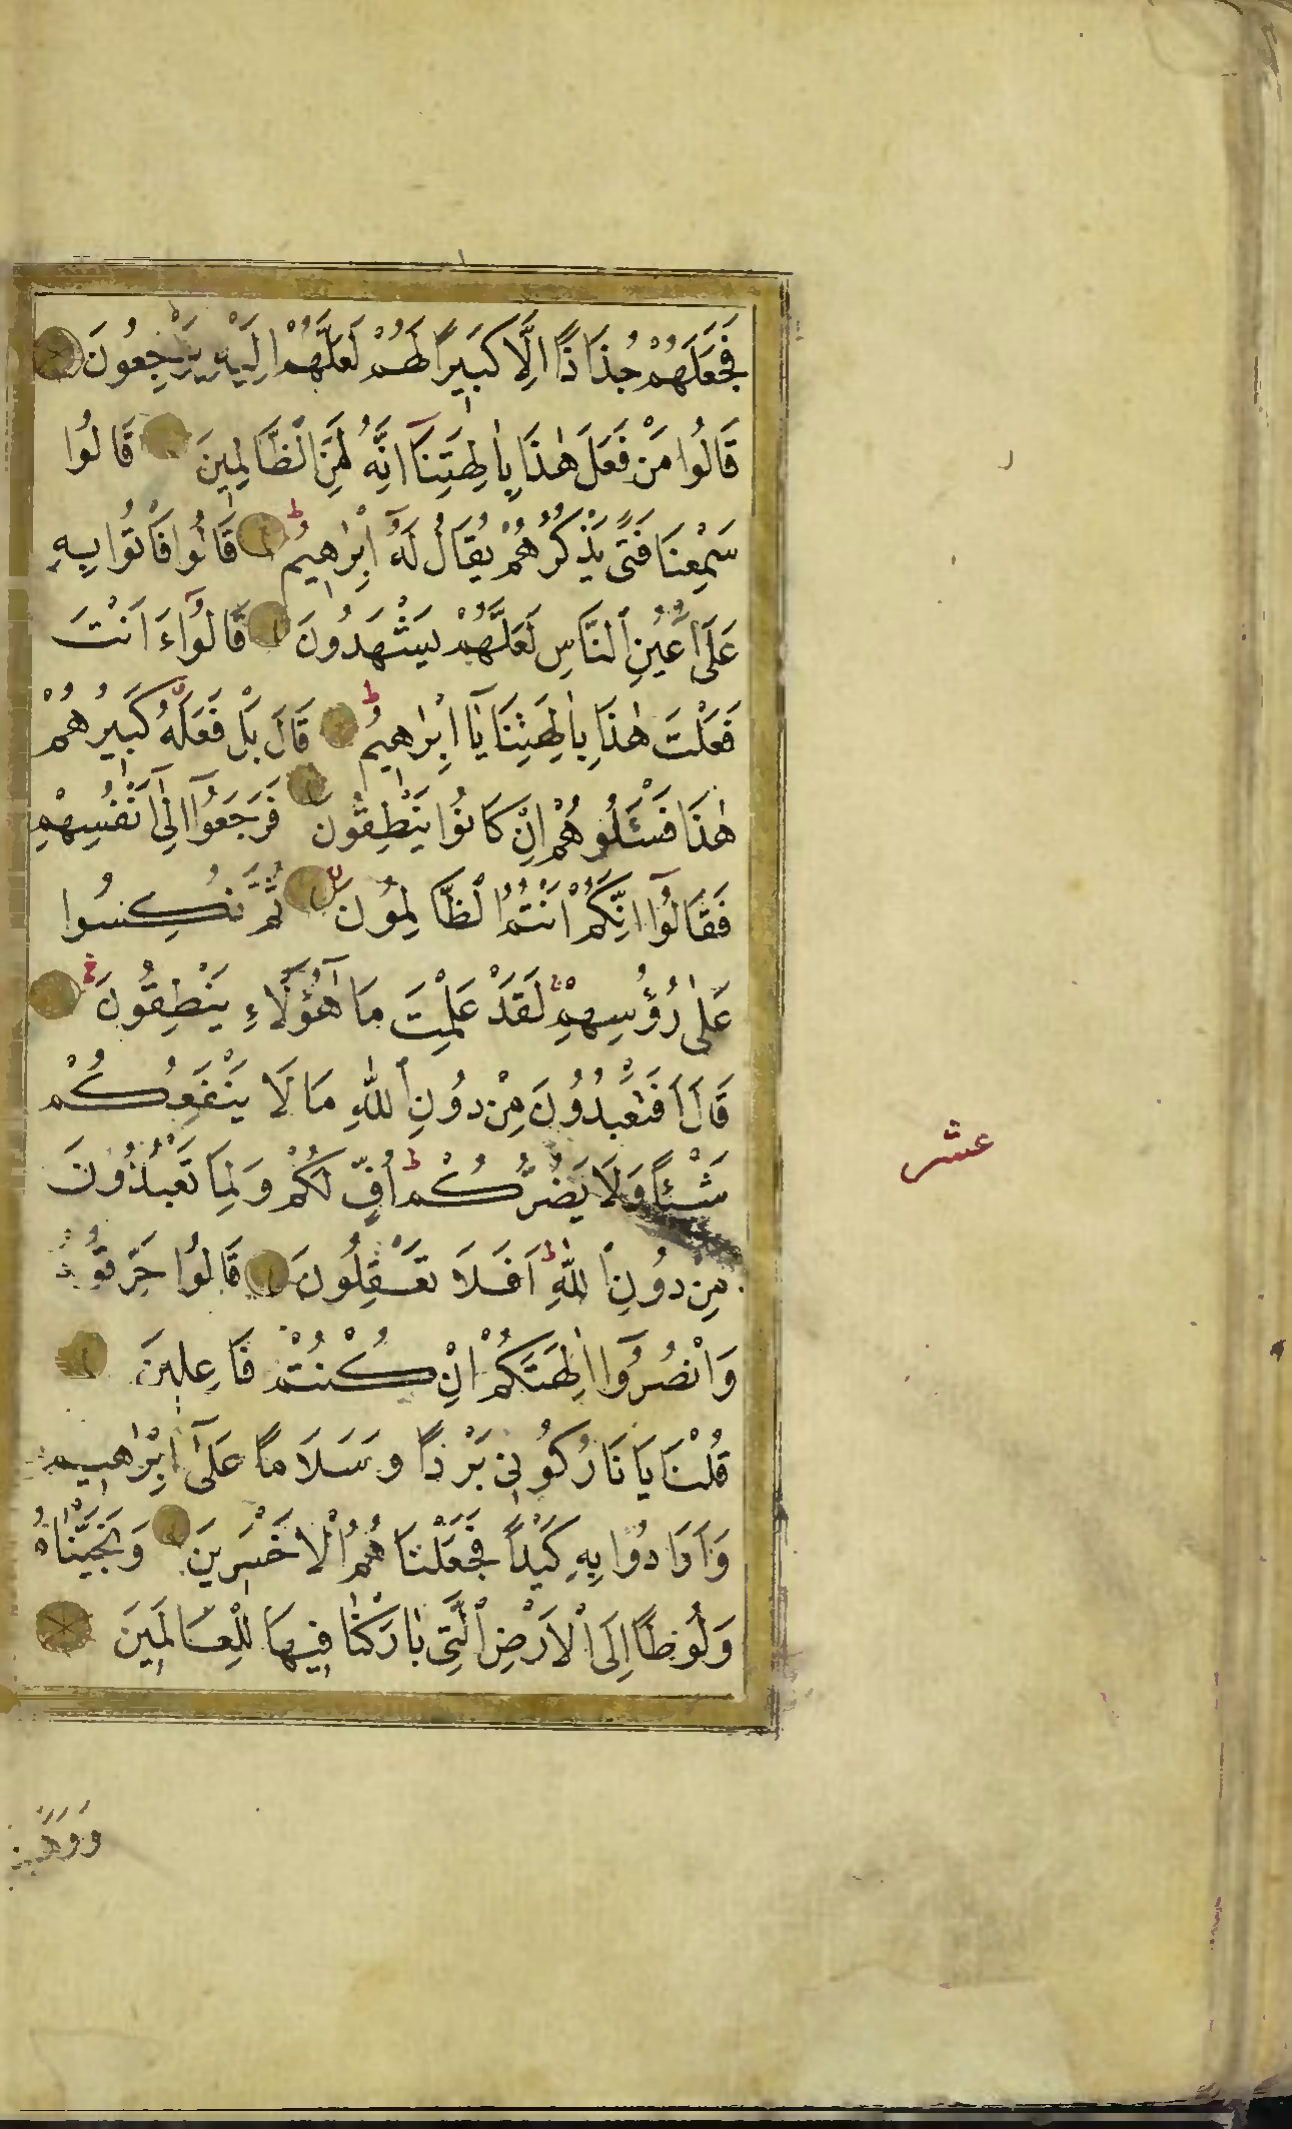 فَجَعَلَهُمْ جُذَاذًا اِلَّا كَبِيرًا لَهُمْ لَعَلَّهُمْ اِلَيْهِ يَرْجِعُونَ
قَالُوا مَنْ فَعَلَ هٰذَا بِاٰلِهَتِنَآ اِنَّهُ لَمِنَ الظَّالِمِينَ قَالُوا
سَمِعْنَا فَتًى يَذْكُرُهُمْ يُقَالُ لَهُٓ اِبْرٰهِيمُ ط قَالُوا فَأْتُوا بِهِ
عَلٰٓى اَعْيُنِ النَّاسِ لَعَلَّهُمْ يَشْهَدُونَ قَالُوٓا ءَاَنْتَ
فَعَلْتَ هٰذَا بِاٰلِهَتِنَا يَآ اِبْرٰهِيمُ ط قَالَ بَلْ فَعَلَهُ كَبِيرُهُمْ
هٰذَا فَسْـَٔلُوهُمْ اِنْ كَانُوا يَنْطِقُونَ فَرَجَعُوٓا اِلٰٓى اَنْفُسِهِمْ
فَقَالُوٓا اِنَّكُمْ اَنْتُمُ الظَّالِمُونَ لا ثُمَّ نُكِسُوا
عَلٰى رُؤُسِهِمْ لَقَدْ عَلِمْتَ مَا هٰٓؤُلَآءِ يَنْطِقُونَ
قَالَ اَفَتَعْبُدُونَ مِنْ دُونِ اللّٰهِ مَا لَا يَنْفَعُكُمْ
شَيْـًٔا وَلَا يَضُرُّكُمْ ط اُفٍّ لَكُمْ وَلِمَا تَعْبُدُونَ
مِنْ دُونِ اللّٰهِ ط اَفَلَا تَعْقِلُونَ قَالُوا حَرِّقُو
وَانْصُرُوٓا اٰلِهَتَكُمْ اِنْ كُنْتُمْ فَاعِلِينَ
قُلْنَا يَا نَارُ كُونِي بَرْدًا وَسَلَامًا عَلٰٓى اِبْرٰهِيمَ
وَاَرَادُوا بِهِ كَيْدًا فَجَعَلْنَاهُمُ الْاَخْسَرِينَ وَنَجَّيْنَاهُ
وَلُوطًا اِلَى الْاَرْضِ الَّتِي بَارَكْنَا فِيهَا لِلْعَالَمِينَ
عشر
وَوَهَبْنَ